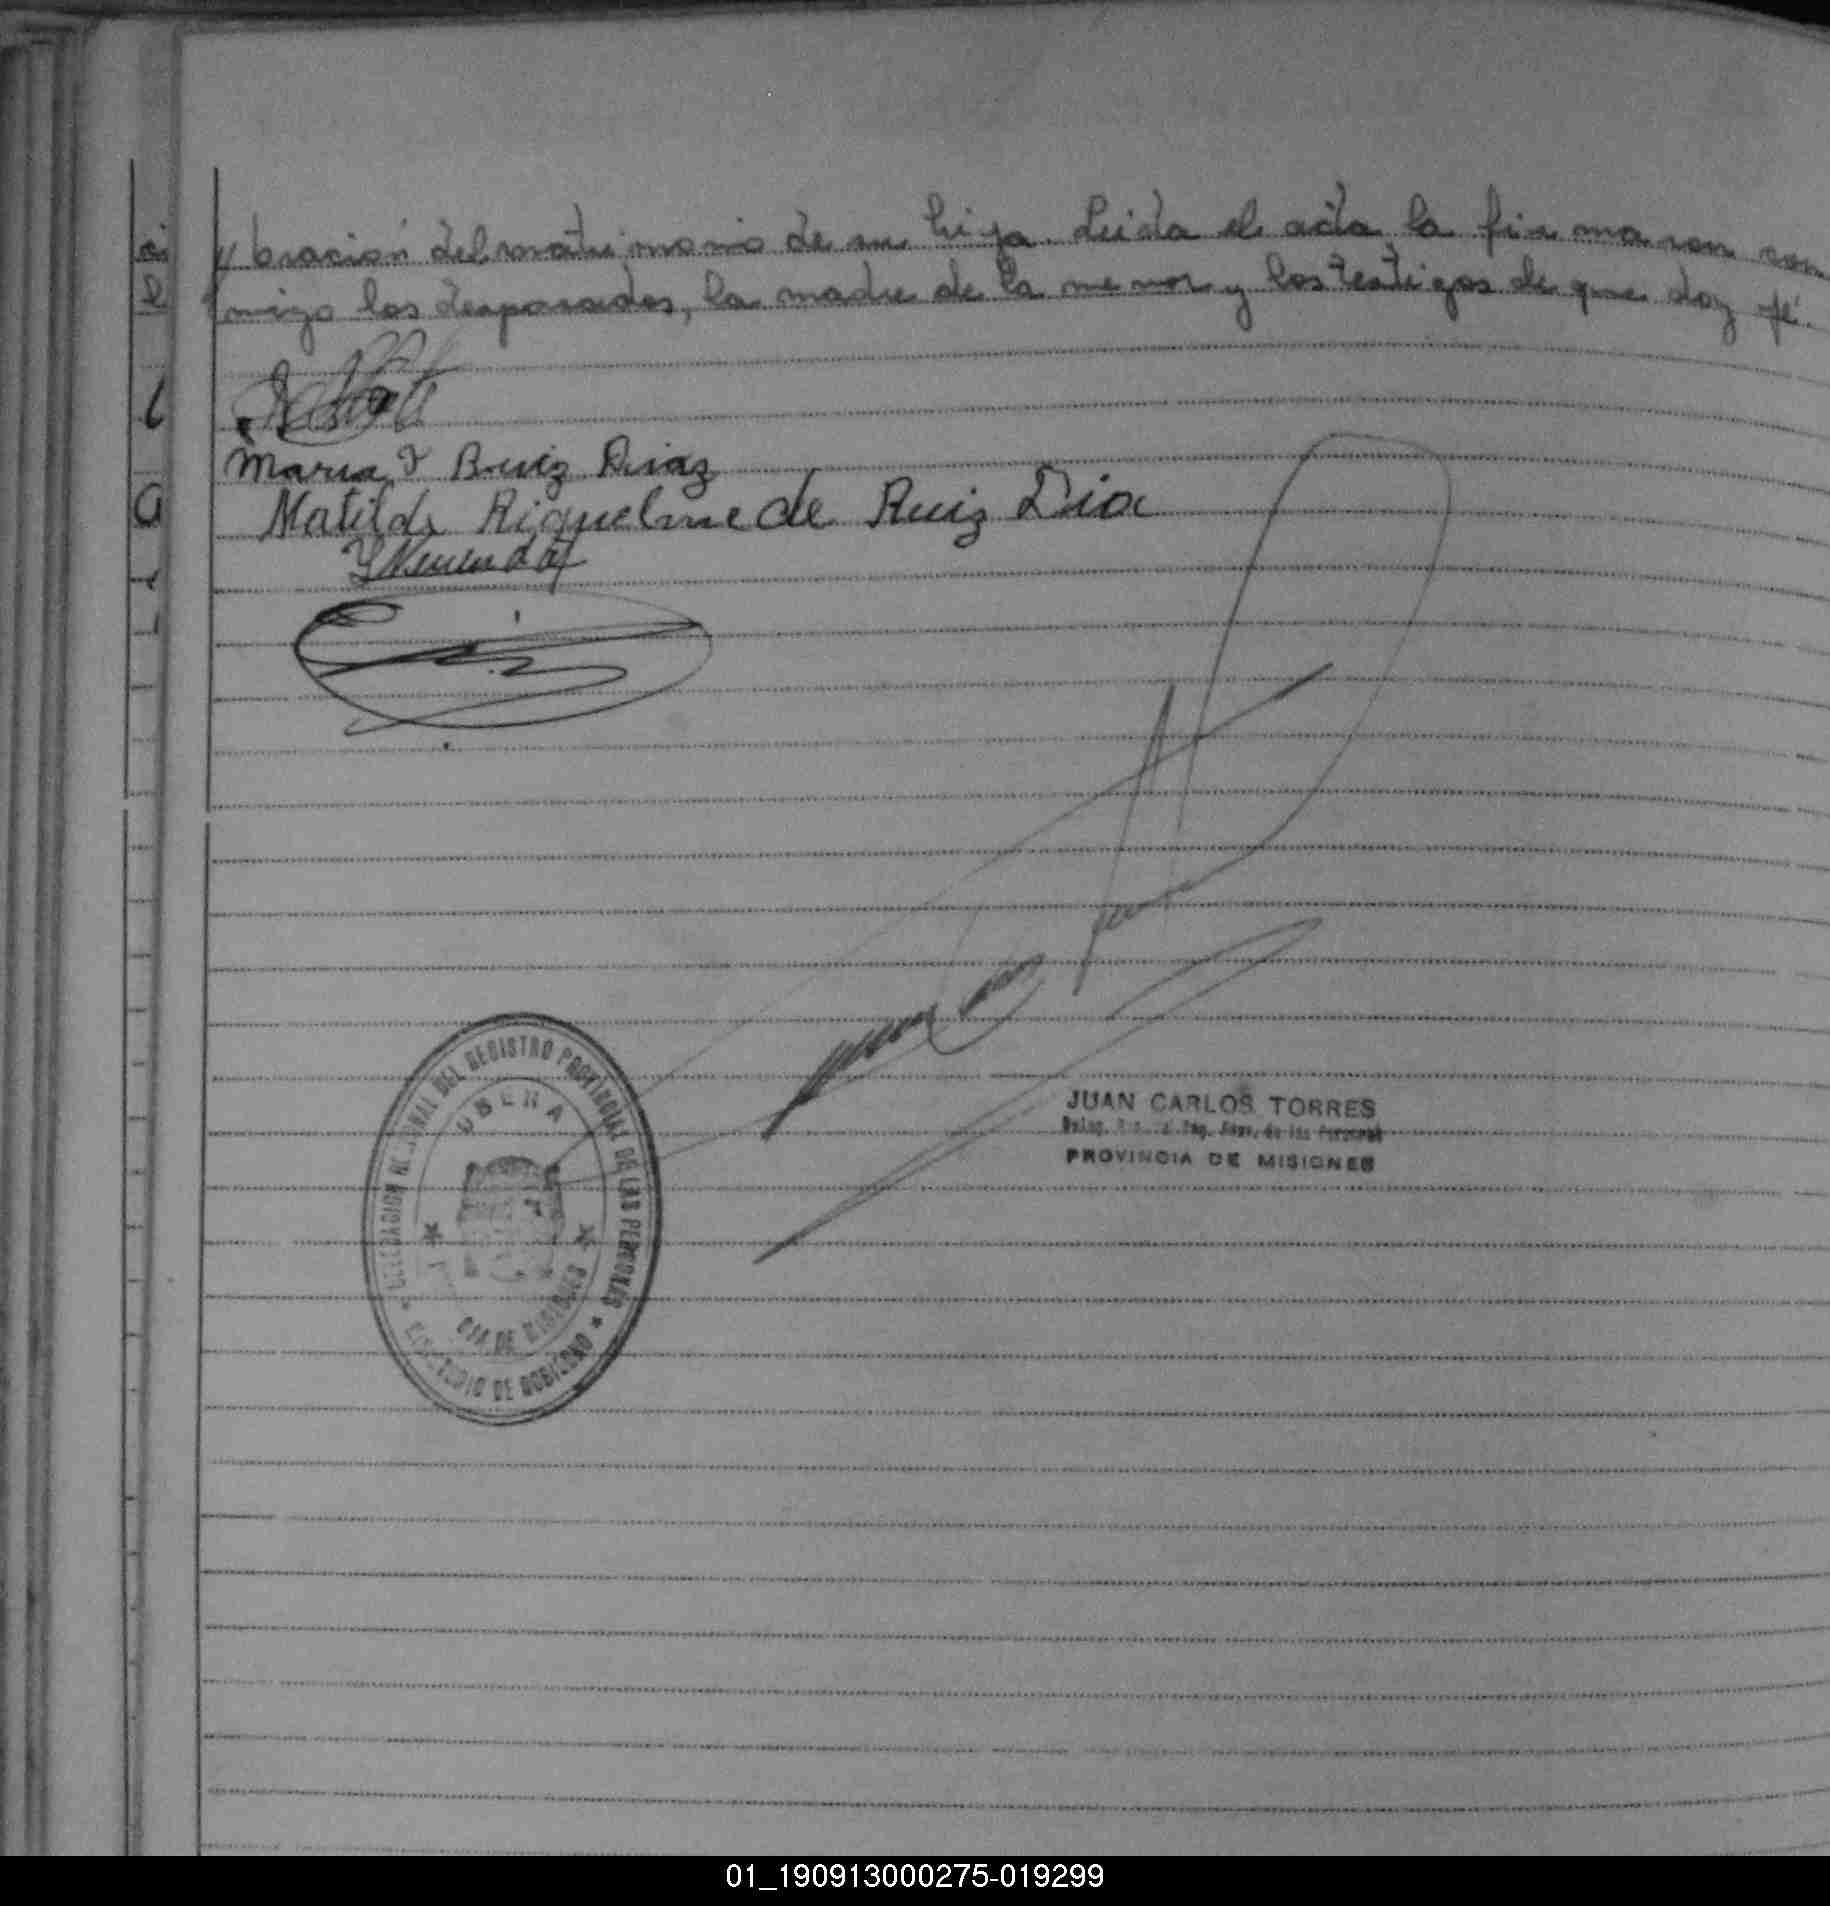 // bración del matrimonio de su hija. Leída el acta la firmaron con
migo los desposados, la madre de la menor y los testigos de que doy fé.
Maria I Ruiz Diaz
Matilde Riquelme de Ruiz Dia
DELEGACION REGIONAL DEL REGISTRO PROVINCIAL DE LAS PERSONAS
OBERA
CIA DE MISIONES
DE GOBIERNO
JUAN CARLOS TORRES
Deleg. Reg. Prov. de las Personas
PROVINCIA DE MISIONES
01_190913000275-019299